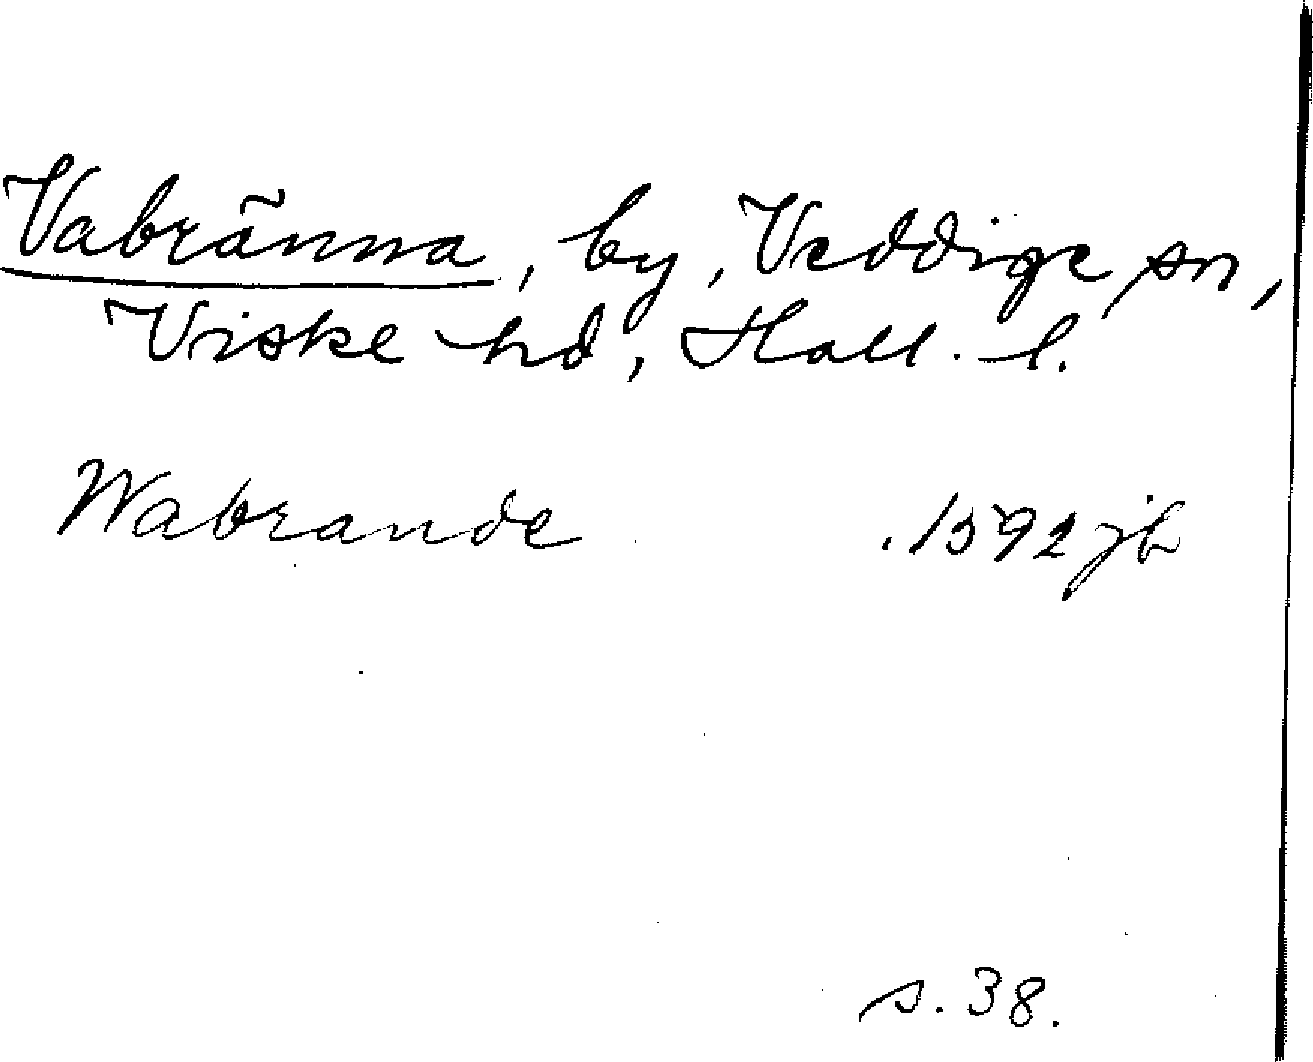 Vabränna, by, Veddige sn,
Viske hd, Hall. l.
Wabrande 1592 jb
s. 38.